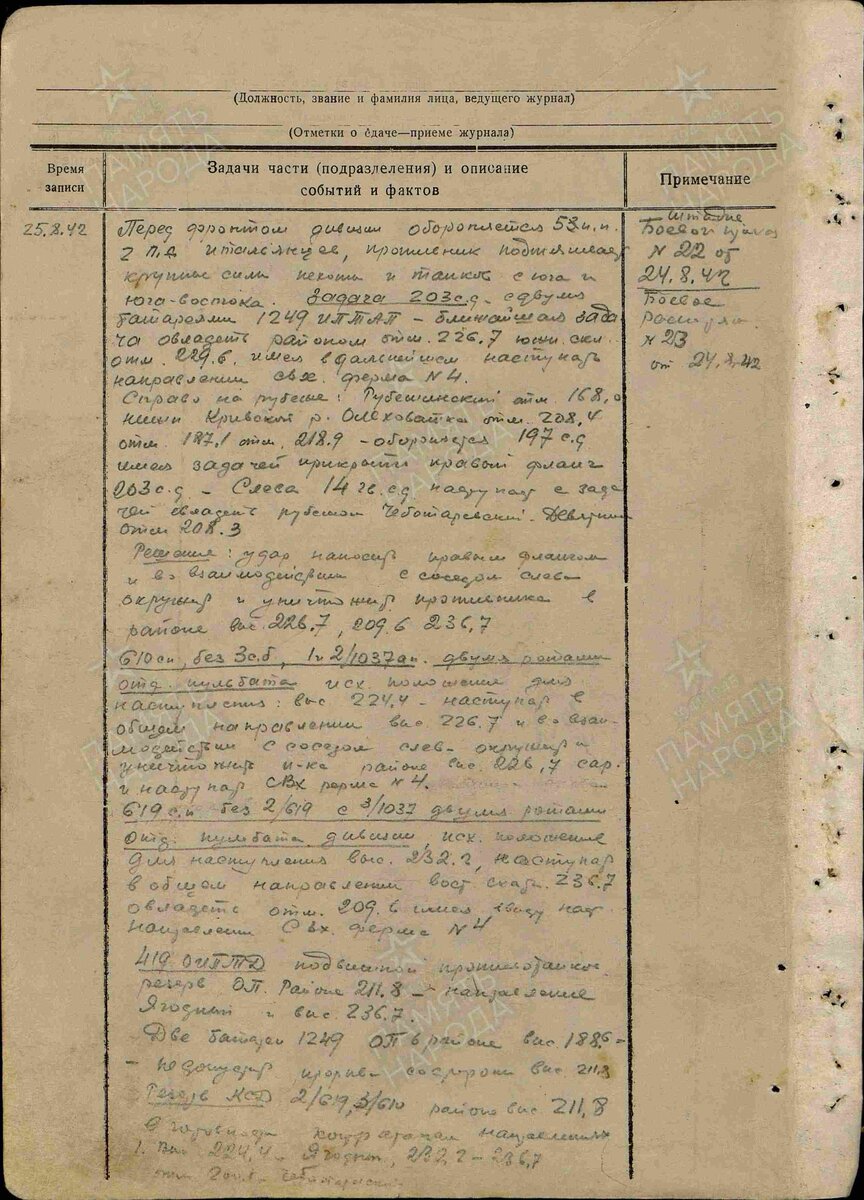 (Должность, звание и фамилия лица, ведущего журнал)
(Отметки о сдаче—приеме журнала)
Время записи
Задачи части (подразделения) и описание
событий и фактов
Примечание
25.8.42
Перед фронтом дивизии обороняется 53 п.п.
2 п.д итальянцев, противник подтягивает
крупные силы пехоты и танков с юга и
юга-востока. Задача 203 с.д. с двумя
батареями 1249 ИПТАП – ближайшая зада
ча овладеть районом отм. 226.7 скл.
отм. 229.6, имея в дальнейшем наступать
направлении свх. ферма N 4.
Справа на рубеже: Рубешинский отм. 168,0
Кривской р. Ольховатка отм. 208,4
отм. 187.1 отм. 218.9 – обороняется 197 с.д
имея задачей прикрыть правый фланг
203 с.д – Слева 14 гв. сд наступает с зада
чей овладеть рубежом Чеботаревский.
отм 208.3
Решение: удар наносить правым флангом
и во взаимодействии с соседом слева
окружить и уничтожить противника в
районе выс. 226.7, 209.6 236,7
610 сп, без 3 с.б, 1 и 2/1037 ап. двумя ротами
отд. пульбата исх. положение для
наступления: выс. 224.4 – наступать в
общем направлении выс. 226.7 и во взаи-
модействии с соседом слева окружить и
уничтожить п-ка районе выс. 226,7 сар.
и наступать СВХ ферма N 4.
619 с.п без 2/619 с 3/1037 двумя ротами
отд. пульбата дивизии, исх. положение
для наступления выс. 232.2, наступать
в общем направлении вост. скат. 236.7
овладеть отм. 209.6 имея ввиду нас
направлении СВХ. ферма N 4
419 ОИПТД подвижной противотанков.
резерв ОП. Районе 211.8 – направление
Ягодный и выс. 236.7.
Две батареи 1249 ОП в районе выс. 188.6 –
– недопустить прорыва со стороны выс. 211.8
Резерв КСД 2/619, 3/610 районе выс 211,8
в готовности контратакам направлениях
1. Выс 224,4 – Ягодный, 232,2 – 236,7
Боевой приказ
N 22 от
24.8.42
Боевое
распоряж.
N 23
от 24.8.42
ПАМЯТЬ
НАРОДА